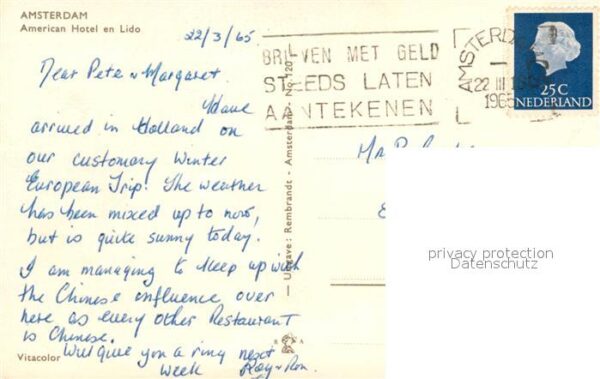 AMSTERDAM
American Hotel en Lido
22/3/65
BRIEVEN MET GELD
STEEDS LATEN
AANTEKENEN
AMSTERDAM
22 III
1965
25C
NEDERLAND
Dear Pete & Margaret
Have
arrived in Holland on
our customary Winter
European Trip. The weather
has been mixed up to now,
but is quite sunny today.
I am managing to keep up with
the Chinese influence over
here as every other Restaurant
is Chinese.
Will give you a ring next
week Ray & Ron.
Vitacolor
Uitgave: Rembrandt - Amsterdam - No. 120
R A
Mr P.
E
privacy protection
Datenschutz